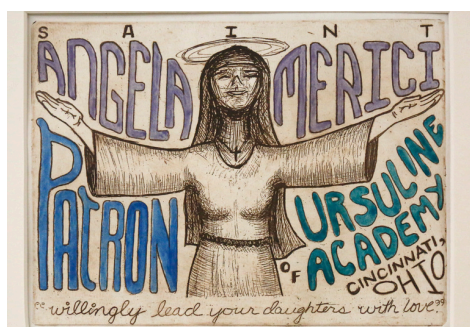 SAINT
ANGELA MERICI
PATRON
OF
URSULINE
ACADEMY
CINCINNATI,
OHIO
"willingly lead your daughters with love."